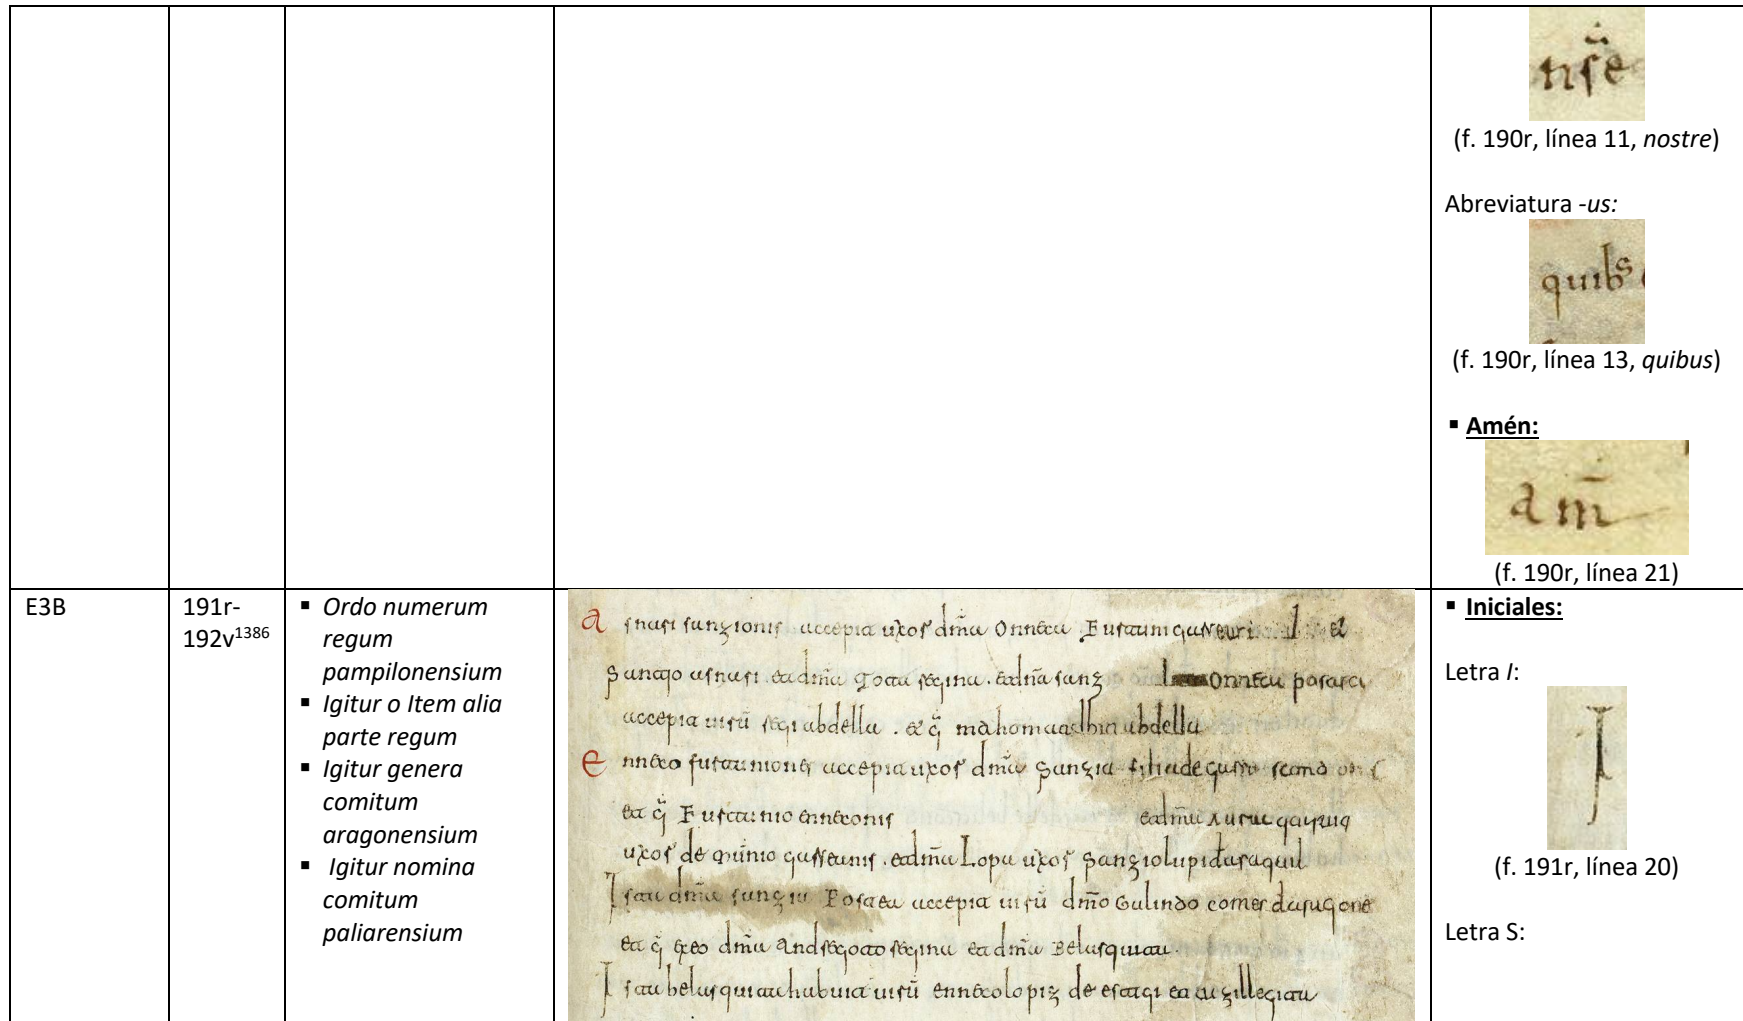 nr̄e
(f. 190r, línea 11, nostre)
Abreviatura -us:
quibs
(f. 190r, línea 13, quibus)
▪ Amén:
am̄
(f. 190r, línea 21)
E3B
191r-
192v1386
▪ Ordo numerum
regum
pampilonensium
▪ Igitur o Item alia
parte regum
▪ Igitur genera
comitum
aragonensium
▪ Igitur nomina
comitum
paliarensium
Asnari sanzionis accepit uxor dm̄a Onneca Furtuni garseani et
Sanctio asnari et dm̄a Tota regina. et dm̄a sanz Onneca postea
accepit uirū regi abdella. et g̈ mahomat ibn abdella
Enneco furtuniones accepit uxor dm̄a Sanzia filia de garsia
et g̈ Furtunio enneconis et dm̄a Auria qui fuit
uxor de Munio garseanis. et dm̄a Lopa uxor Sanziolupi daraquil
Ista dm̄a sanzia Postea accepit uirū dm̄o Galindo comes daragone
et g̈ exeo dm̄a Andregoto regina et dm̄a Belasquita
Ista belasquita habuit uirū ennecolopiz de estigi et
▪ Iniciales:
Letra I:
I
(f. 191r, línea 20)
Letra S: